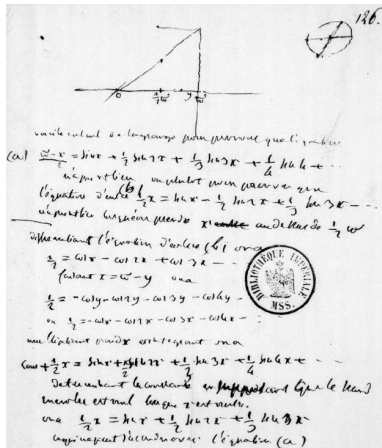 126.
0 ½ϖ y ϖ
voici le calcul de lagrange pour prouver que l'équation
(a) ϖ-x/2 = sin x + ½ sin 2x + ⅓ sin 3x + ¼ sin 4x + ...
n'est pas bien ou plutot pour prouver que
l'équation d'euler (b) ½x = sin x - ½ sin 2x + ⅓ sin 3x - ...
n'est pas bien lorsqu'on prend x au delà de ½ ϖ
differentiant l'équation d'euler (b) on a
½ = cos x - cos 2x + cos 3x - ...
faisant x = ϖ - y on a
½ = - cos y - cos 2y - cos 3y - cos 4y -
ou ½ = - cos x - cos 2x - cos 3x - cos 4x - ...
multipliant par dx et integrant on a
const + ½x = sin x + ½ sin 2x + ⅓ sin 3x + ¼ sin 4x + ...
determinant la constante en supposant que le second
membre est nul lorsque x est nulle.
on a ½x = sin x + ½ sin 2x + ⅓ sin 3x
l'équation (a)
BIBLIOTHÈQUE IMPÉRIALE
MSS.